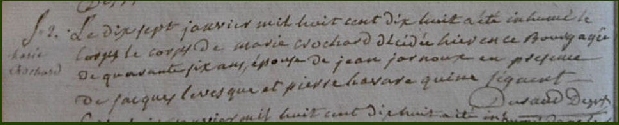 S. 2.
marie
crochard
Le dix sept janvier mil huit cent dix huit a été inhumé le
corps le corps de marie crochard décédée hier en ce Bourg agée
de quarante six ans, épouse de jean jarnoux en présence
de jacques levesque et pierre havare qui ne signent
Durand Desst
janvier mil huit cent dix huit a été inhumé dans le